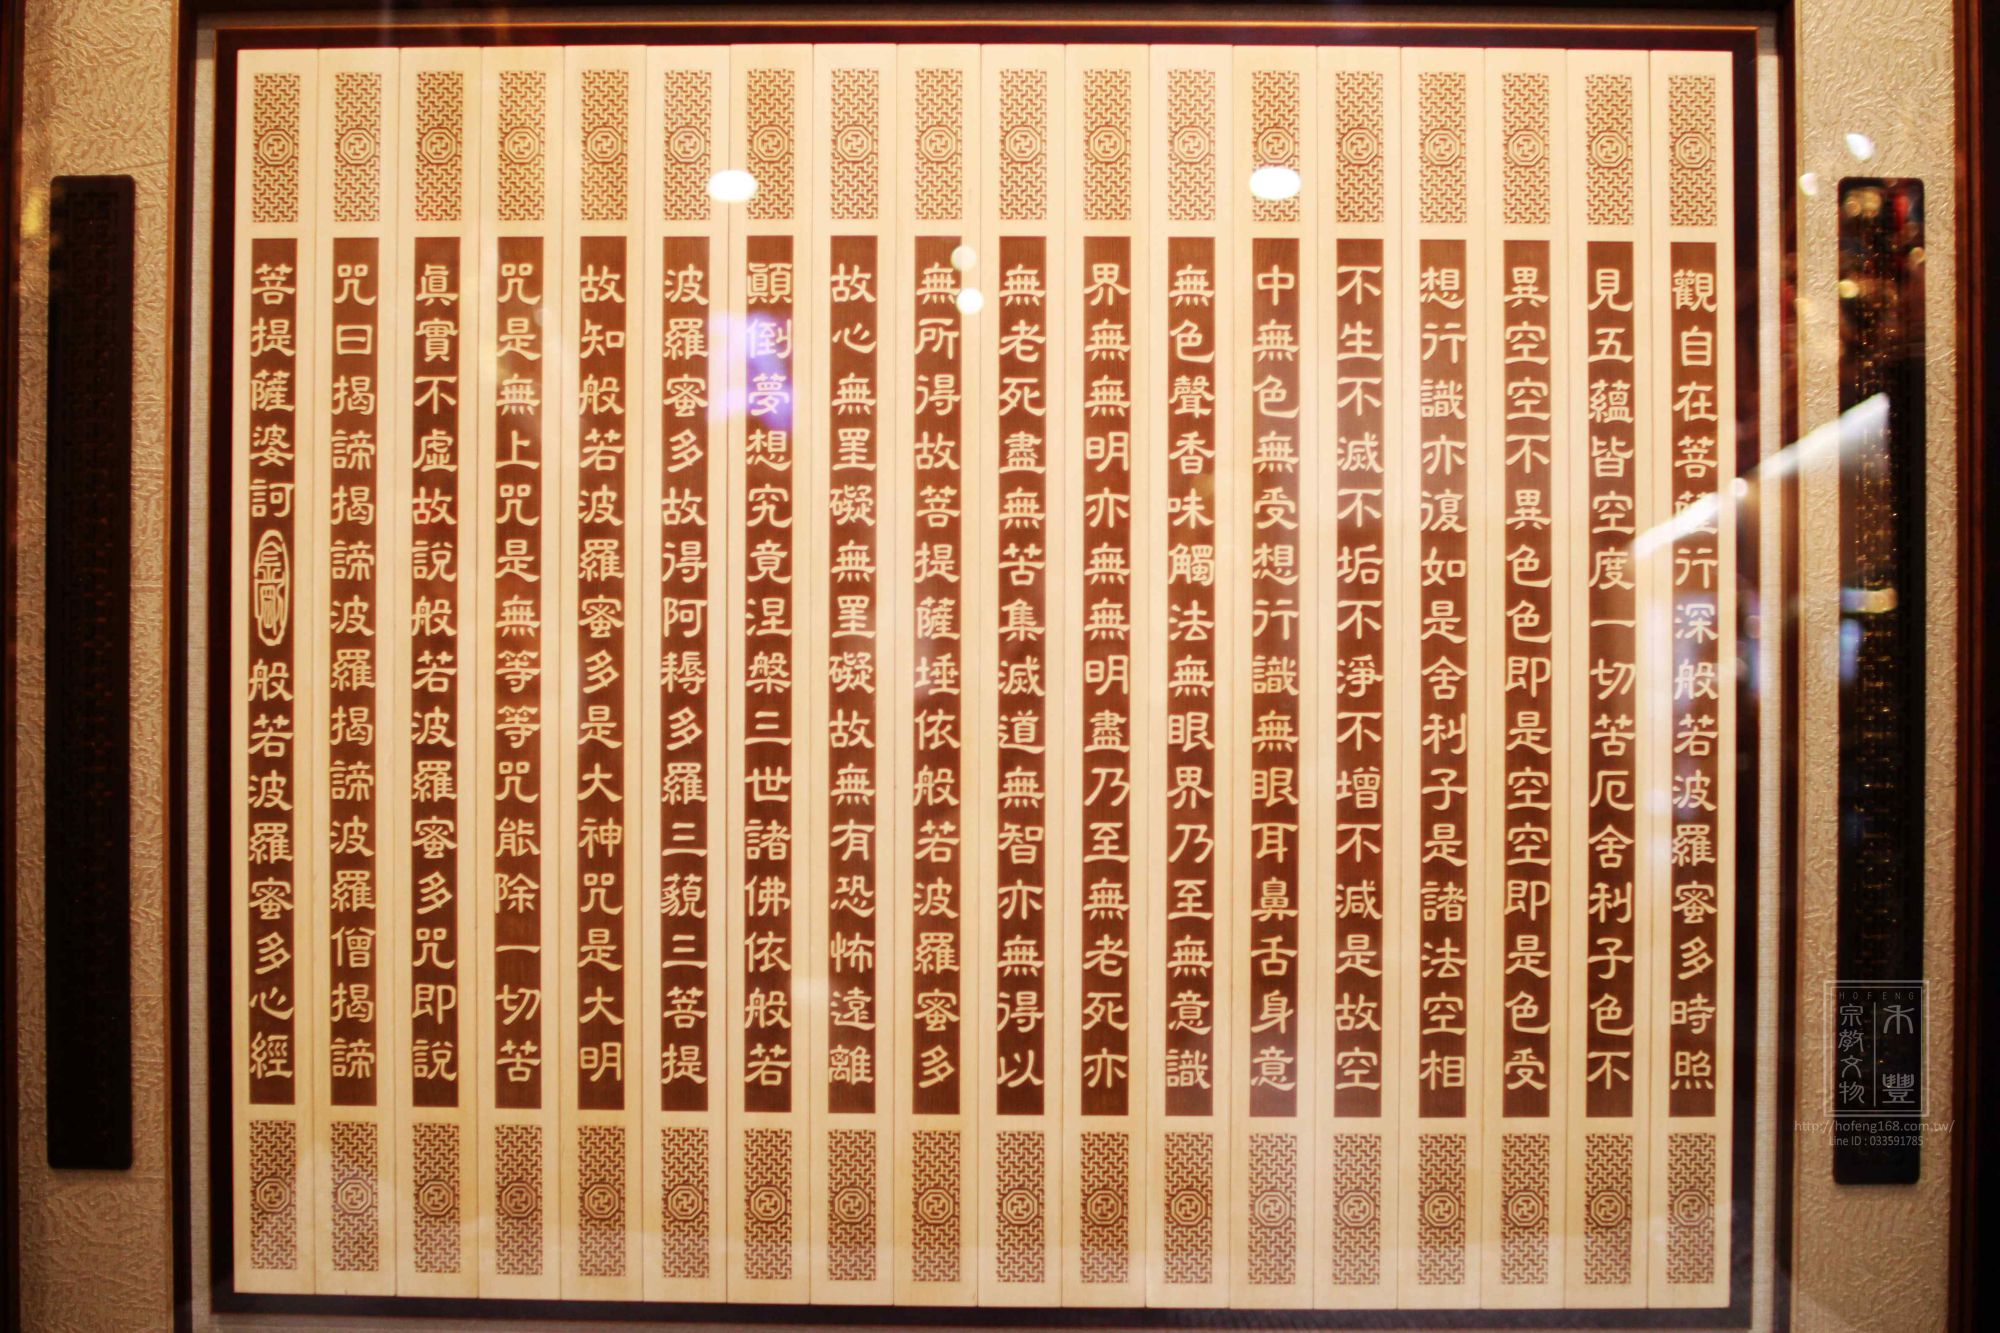 觀自在菩薩行深般若波羅蜜多時照
見五蘊皆空度一切苦厄舍利子色不
異空空不異色色即是空空即是色受
想行識亦復如是舍利子是諸法空相
不生不滅不垢不淨不增不減是故空
中無色無受想行識無眼耳鼻舌身意
無色聲香味觸法無眼界乃至無意識
界無無明亦無無明盡乃至無老死亦
無老死盡無苦集滅道無智亦無得以
無所得故菩提薩埵依般若波羅蜜多
故心無罣礙無罣礙故無有恐怖遠離
顛倒夢想究竟涅槃三世諸佛依般若
波羅蜜多故得阿耨多羅三藐三菩提
故知般若波羅蜜多是大神咒是大明
咒是無上咒是無等等咒能除一切苦
真實不虛故說般若波羅蜜多咒即說
咒曰揭諦揭諦波羅揭諦波羅僧揭諦
菩提薩婆訶 般若波羅蜜多心經
HOFENG
禾豐
宗教文物
http://hofeng168.com.tw/
Line ID : 033591785